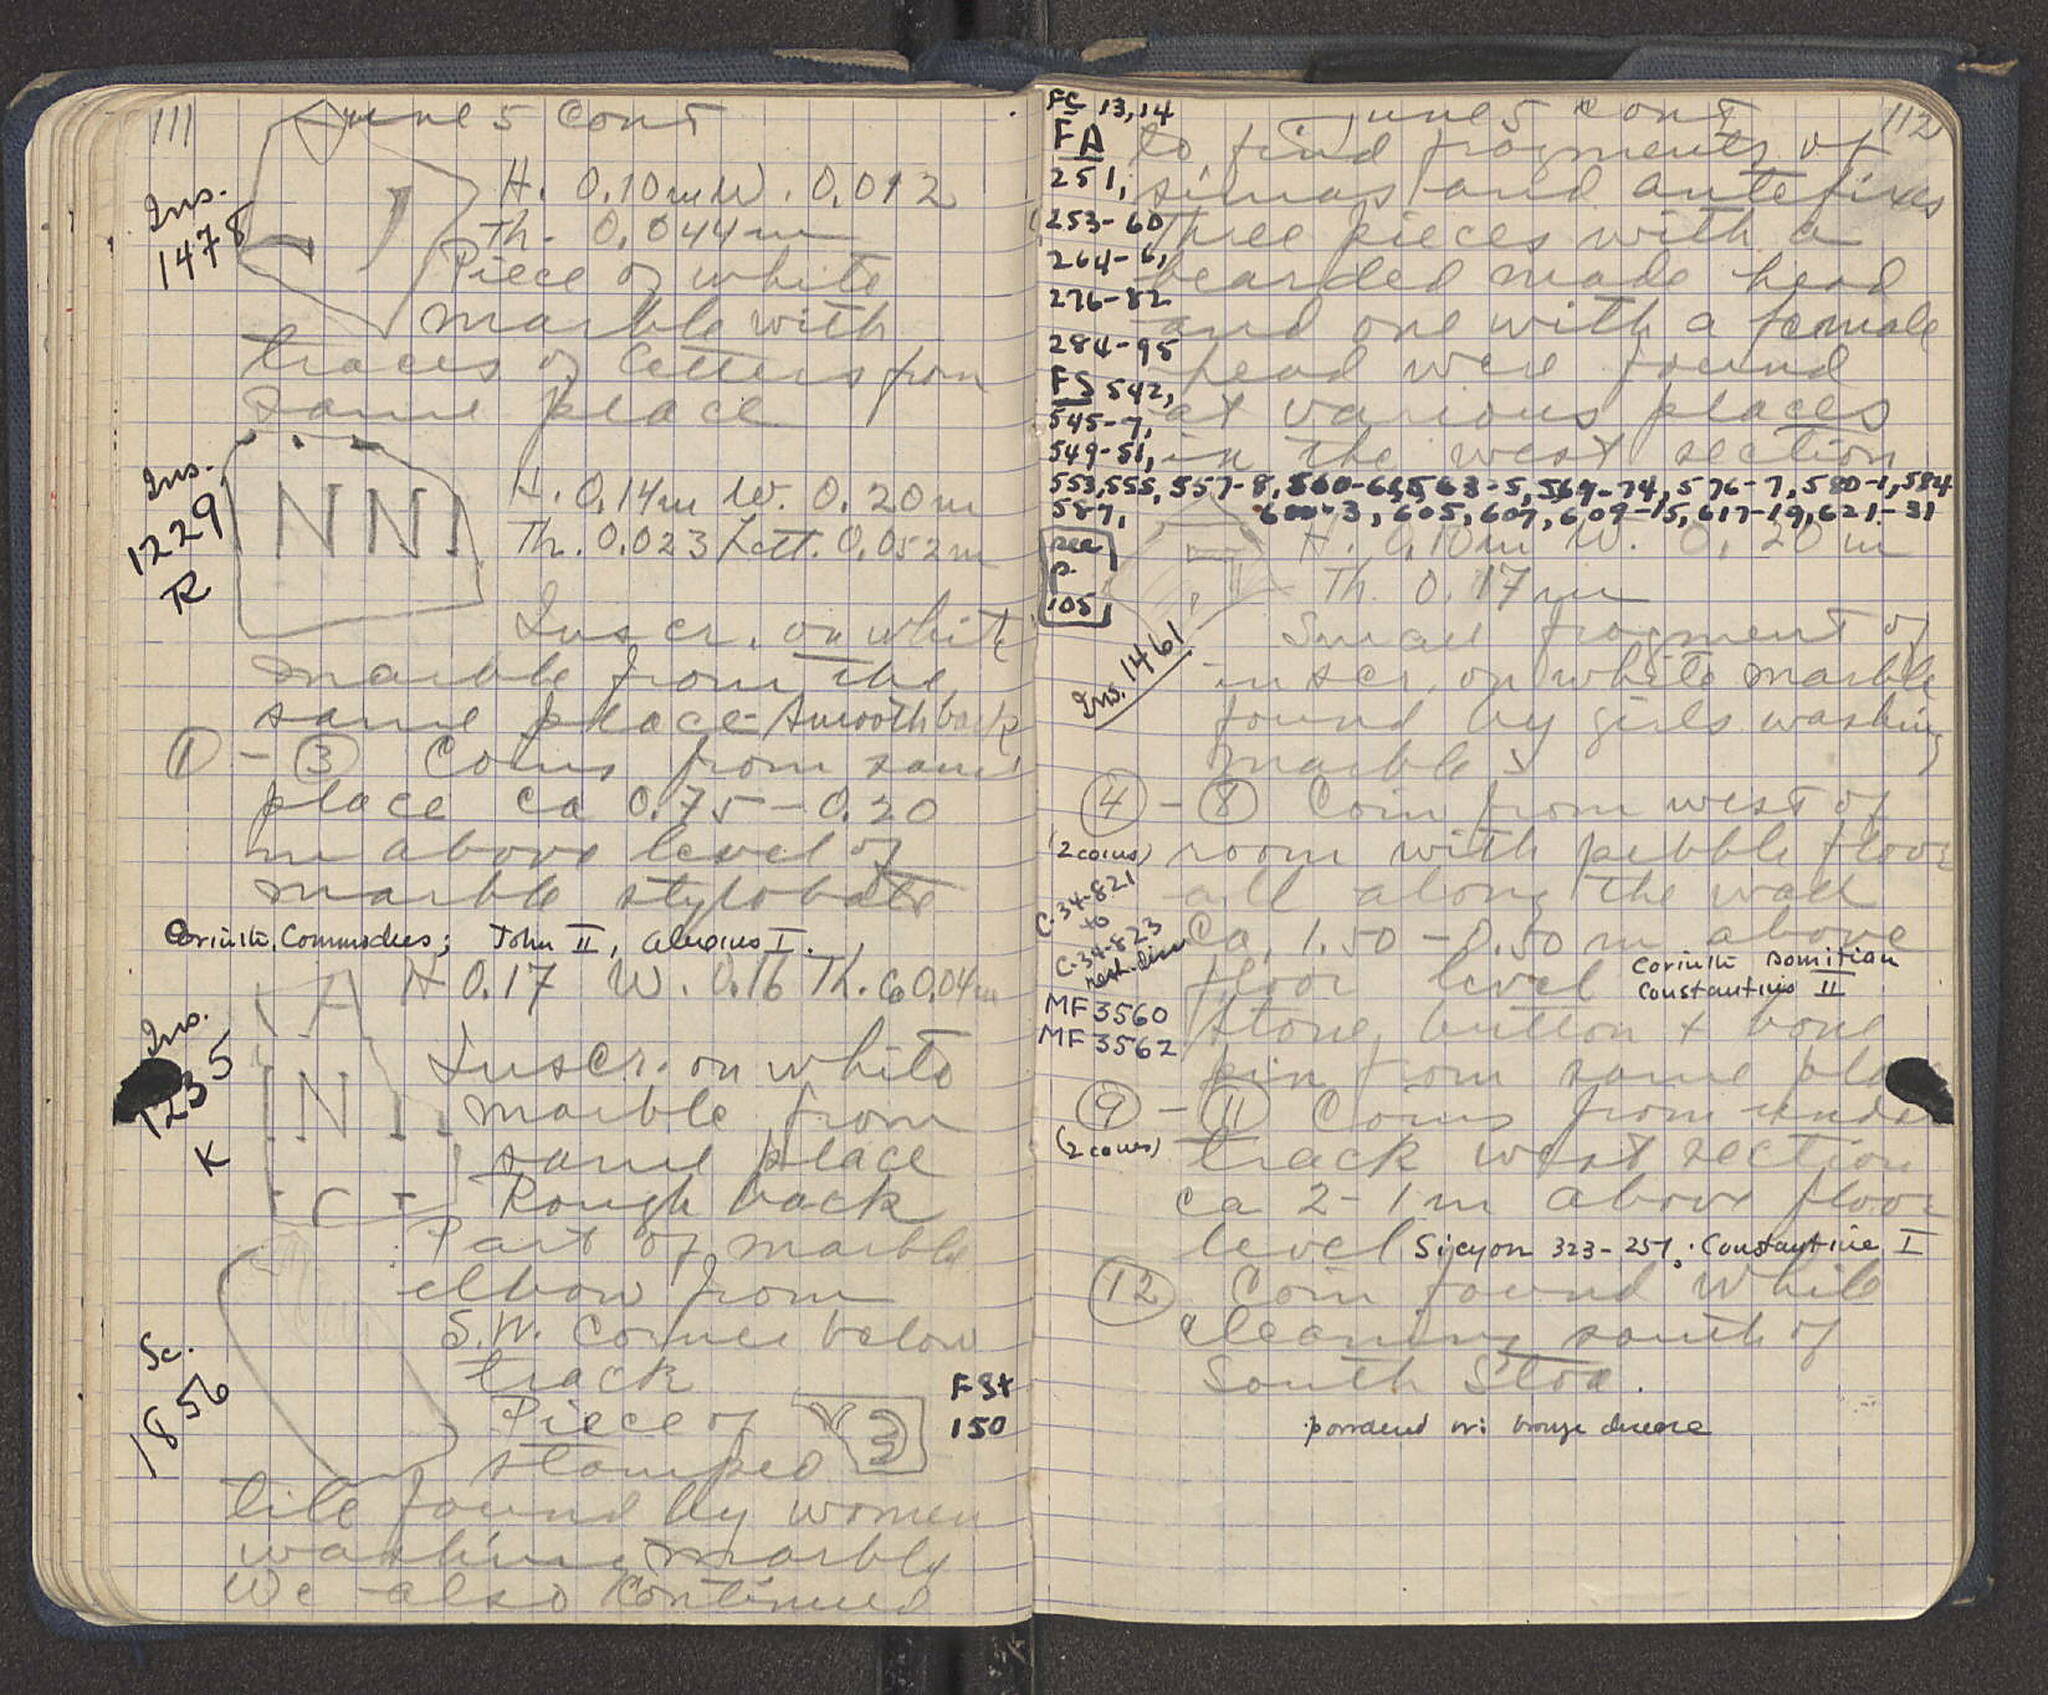 111
June 5 Cont
Ins.
1478
H. 0.10m W. 0.012
Th. 0.044m
Piece of white
marble with
traces of letters from
same place
Ins.
1229
R
NNI
H. 0.14m W. 0.20m
Th. 0.023 Lett. 0.052m
Inscr. on white
marble from the
same place - Smooth back
① - ③ Coins from same
place ca 0.75 - 0.20
m above level of
marble stylobate
Corinth, Commodus; John II, Alexius I.
H 0.17 W. 0.16 Th. ca 0.04m
Ins.
1235
K
INI
Inscr. on white
marble from
same place
Rough back
Part of marble
elbow from
S.W. Corner below
track
Sc.
1856
Piece of
FSt
150
stamped
tile found by women
washing marbly
We also continued
112
June 5 Cont
FC 13,14
FA
251,
253-60
264-6,
276-82
284-95
FS 542,
545-7,
549-51,
553,555, 557-8, 560-61, 563-5, 569-74, 576-7, 580-1, 584
587, 600-3, 605, 607, 609-15, 617-19, 621-31
see
p.
105
to find fragments of
simas and antefixes
Three pieces with a
bearded made head
and one with a female
head were found
at various places
in the west section
H. 0.10m W. 0.20m
Th. 0.17m
Ins. 1461
Small fragment of
inscr. on white marble
found by girls washing
marbles
④ - ⑧ Coin from west of
(2 coins)
room with pebble floor
all along the wall
ca. 1.50 - 0.50 m above
floor level
Corinth Domitian
Constantius II
C-34-821
to
C-34-823
MF 3560
MF 3562
Stone button + bone
pin from same place
⑨ - ⑪ Coins from under
(2 coins)
track west section
ca 2-1m above floor
level Sicyon 323-251; Constantine I
⑫ Coin found while
cleaning south of
South Stoa.
bronze disease